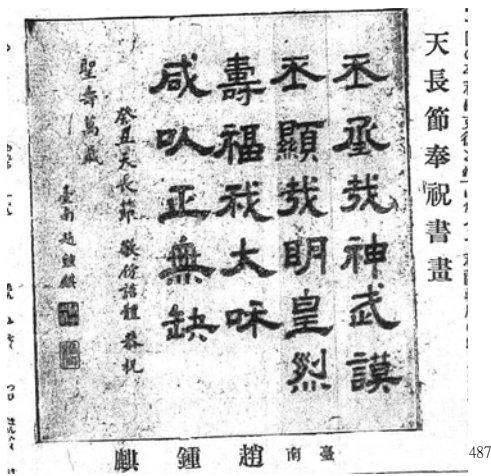 天長節奉祝書畫
丕承哉神武謨
丕顯哉明皇烈
壽福我大咊
咸㕥正無缺
癸丑天長節 敬仿誥體 恭祝
聖壽萬歲
臺南趙鍾麒
臺南 趙鍾麒
487